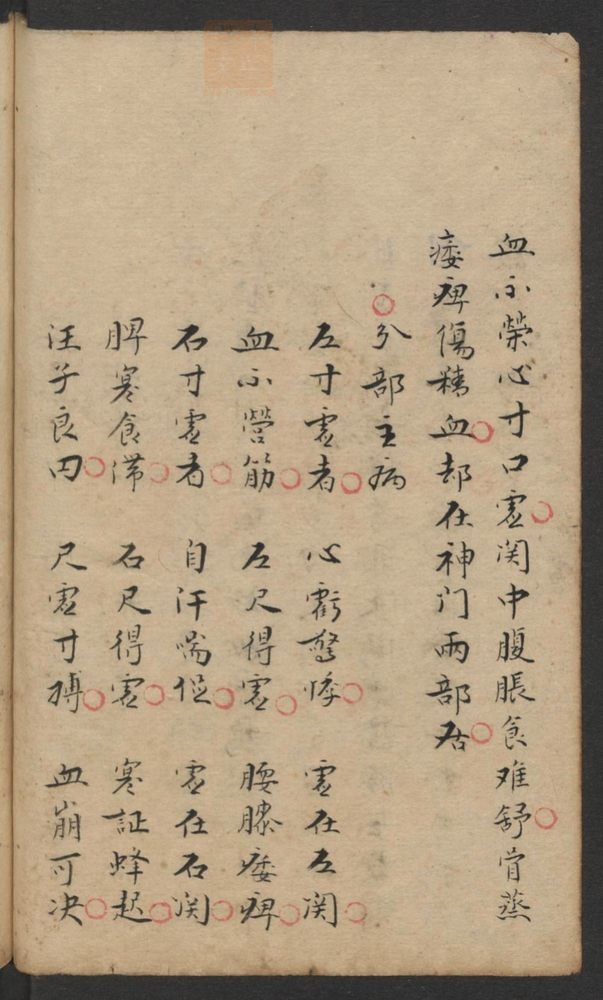 血不榮心寸口虛○関中腹脹食难舒○骨蒸
痿痺傷精血○却在神门兩部居○
○分部主病
左寸虛者○心虧驚悸○虛在左関○
血不營筋○左尺得虛○腰膝痿痺○
右寸虛者○自汗喘促○虛在右関○
脾寒食滞○右尺得虛○寒証蜂起○
汪子良曰○尺虛寸搏○血崩可决○